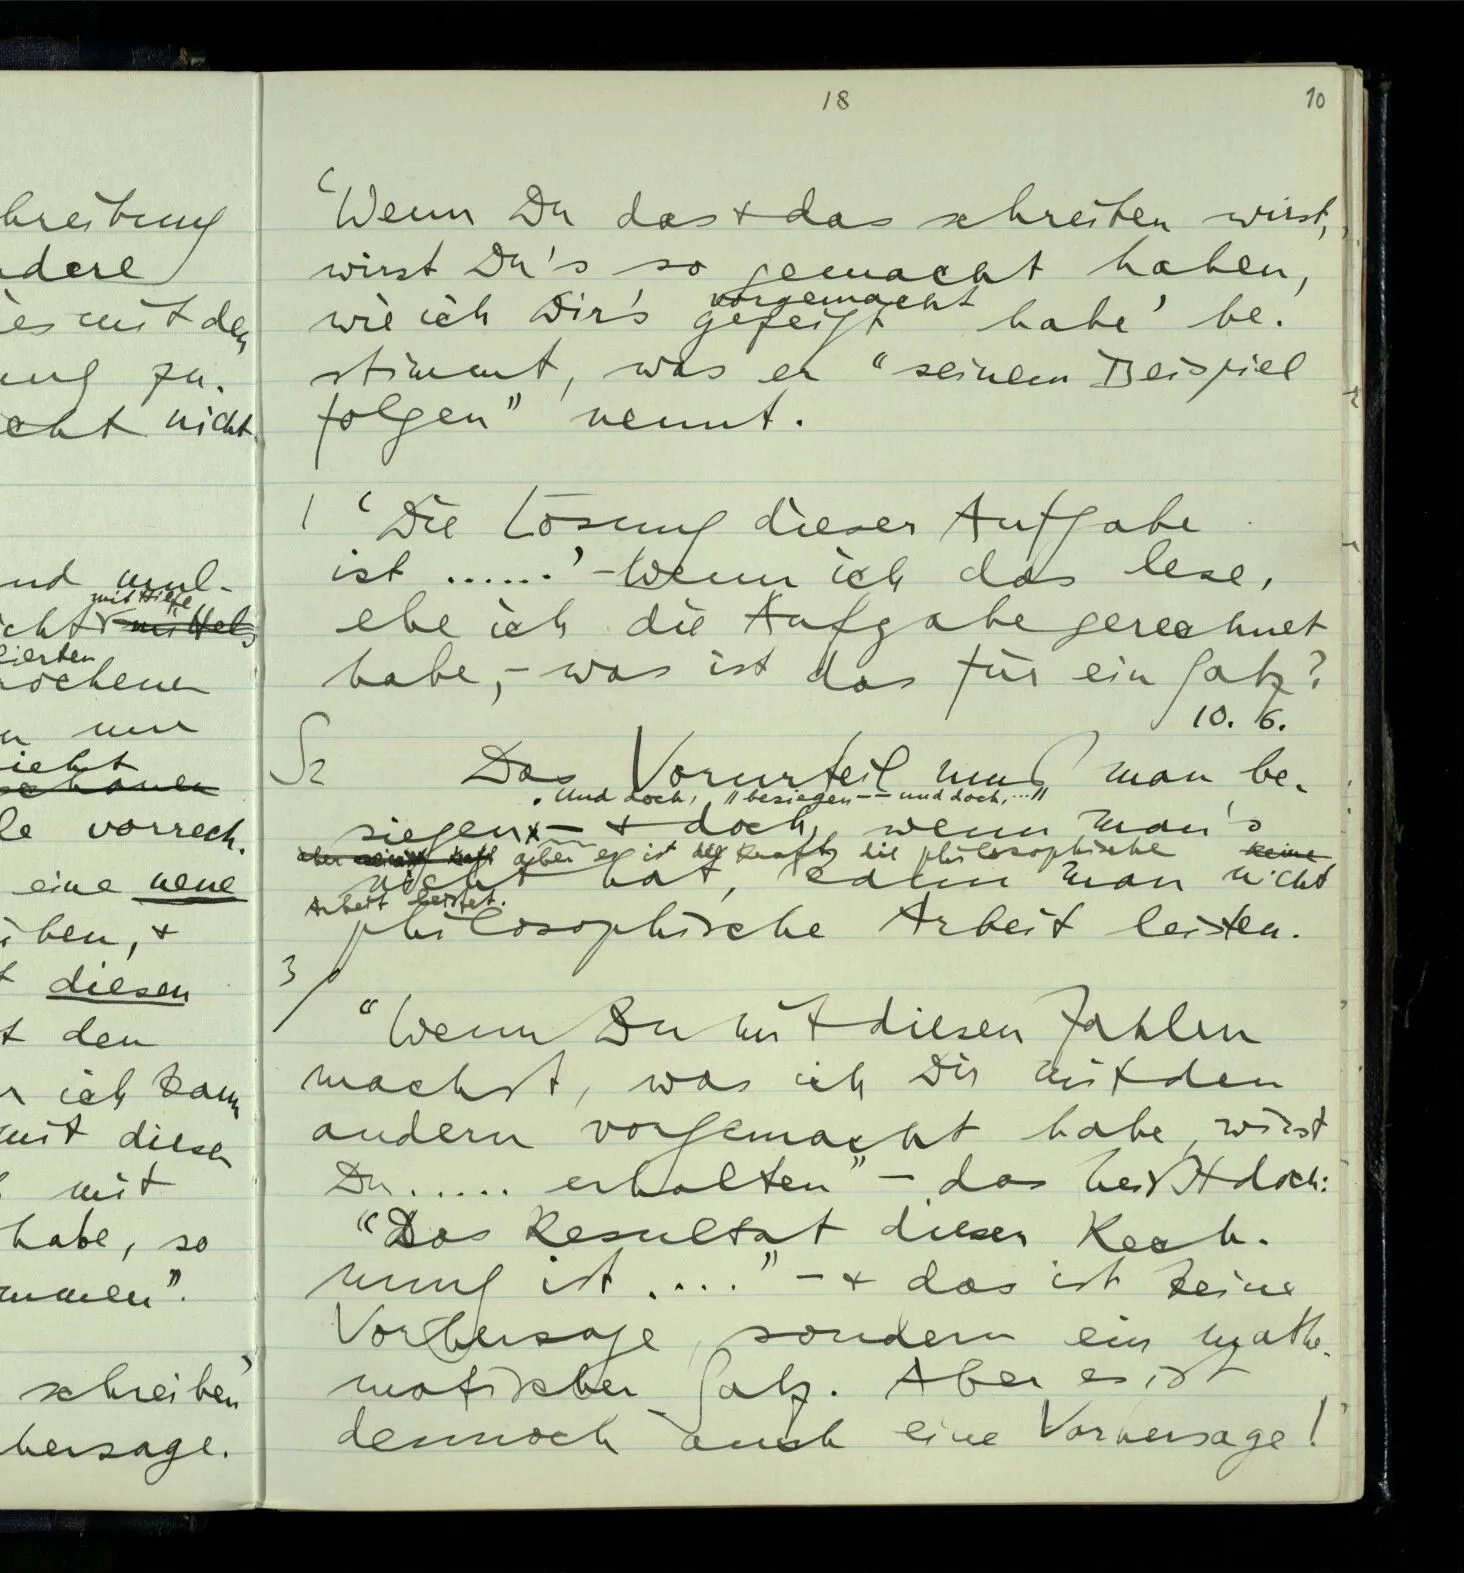 hreibung
dere
es mit den
ung zu-
cht nicht
und mul-
mit Hilfe
cht mittels
ierten
ochenen
nur
sieht
schauen
le vorrech-
eine neue
iben, +
diesen
t den
ich kann
mit diesen
mit
habe, so
mmen”.
schreiben’
hersage.
18 10
‘Wenn Du das + das schreiben wirst,
wirst Du's so gemacht haben,
vorgemacht
wie ich Dir's gezeigt habe’ be-
stimmt, was er “seinem Beispiel
folgen” nennt.
| ‘Die Lösung dieser Aufgabe
ist ......’ – Wenn ich das lese,
ehe ich die Aufgabe gerechnet
habe, – was ist das für ein Satz?
10. 6.
S 2 Das Vorurteil muß man be-
. und doch, “besiegen –– und doch, ...”
siegen – + doch, wenn man's
aber seine Kraft aber es ist die Kraft, die philosophische keine
nicht hat, kann man nicht
Arbeit leistet.
philosophische Arbeit leisten.
3 /
“Wenn Du mit diesen Zahlen
machst, was ich Dir mit den
andern vorgemacht habe, wirst
Du ..... erhalten” – das heißt doch:
“Das Resultat dieser Rech-
nung ist ....” – + das ist keine
Vorhersage, sondern ein mathe-
matischer Satz. Aber es ist
dennoch auch eine Vorhersage!